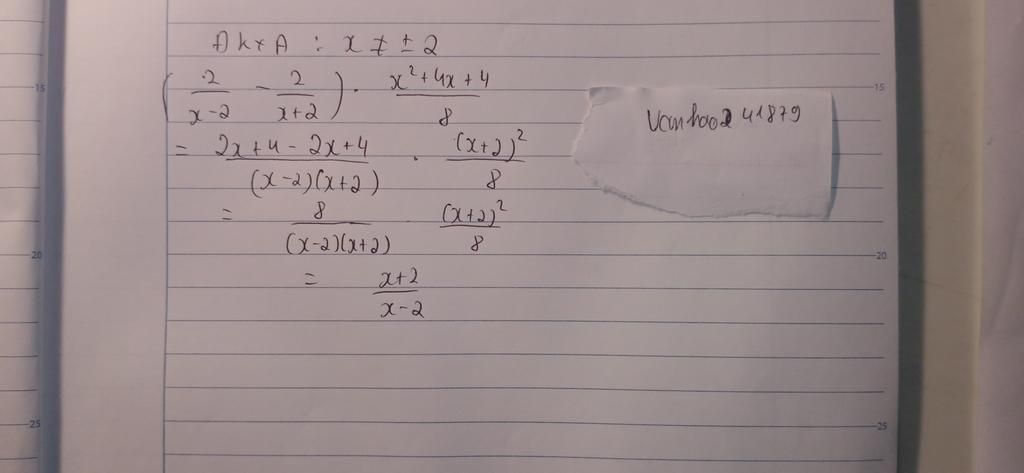 ĐKXĐ : x ≠ ± 2
( 2/(x-2) - 2/(x+2) ) . (x²+4x+4)/8
= (2x+4-2x+4)/((x-2)(x+2)) . (x+2)²/8
= 8/((x-2)(x+2)) . (x+2)²/8
= (x+2)/(x-2)
Vanhao241879
15
15
20
20
25
25